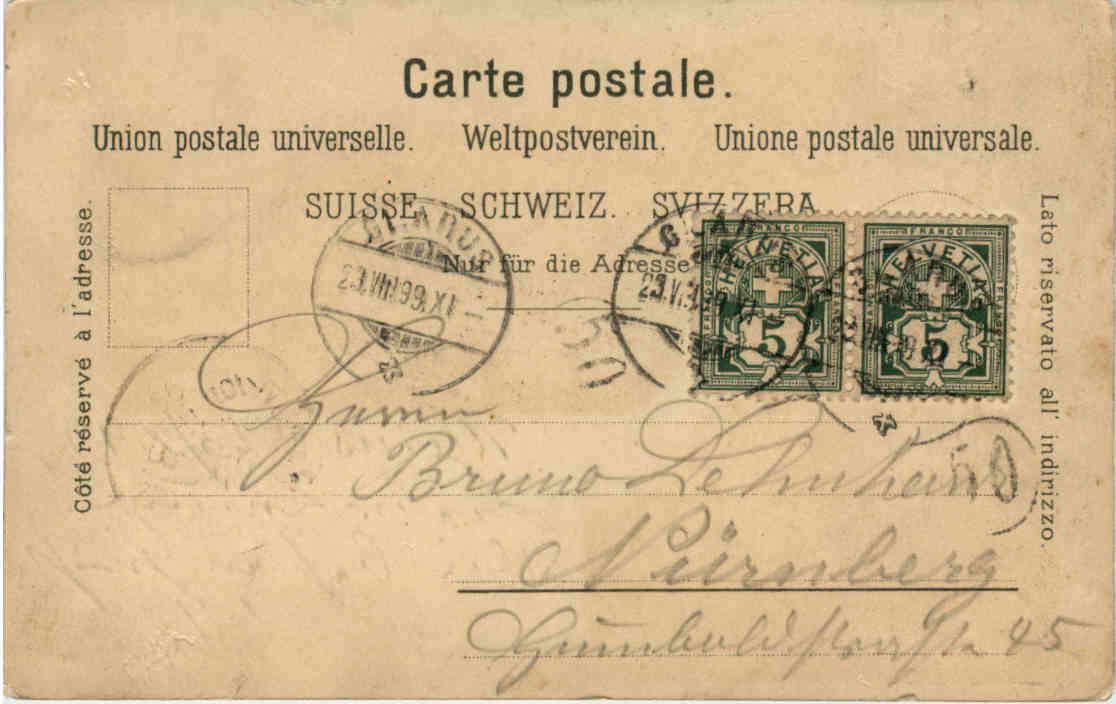 Carte postale.
Union postale universelle. Weltpostverein. Unione postale universale.
SUISSE. SCHWEIZ. SVIZZERA.
Nur für die Adresse
Côté réservé à l'adresse.
Lato riservato all' indirizzo.
GLARUS
FRANCO HELVETIA 5
FRANCO HELVETIA 5
Herrn
Bruno
Nürnberg
Humboldtstraße 45